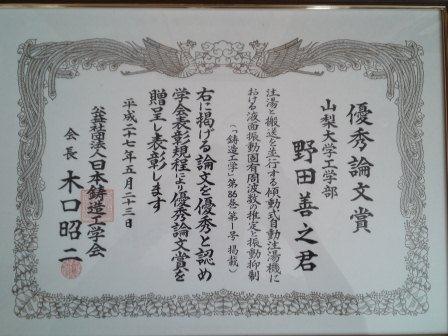 優秀論文賞
山梨大学工学部
野田善之君
注湯と搬送を並行する傾動式自動注湯機に
おける液面振動固有周波数の推定と振動抑制
(「鋳造工学」第86巻第1号 掲載)
右に掲げる論文を優秀と認め
学会表彰規程により優秀論文賞を
贈呈し表彰します
平成二十七年五月二十三日
公益社団法人日本鋳造工学会
会長 木口昭二